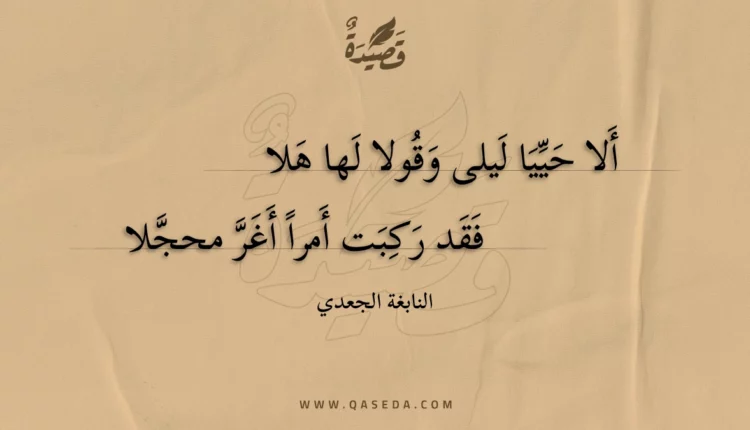 قَصِيْدَةٌ
أَلا حَيِّيَا لَيلى وَقُولا لَها هَلا
فَقَد رَكِبَت أَمراً أَغَرَّ محجَّلا
النابغة الجعدي
WWW.QASEDA.COM